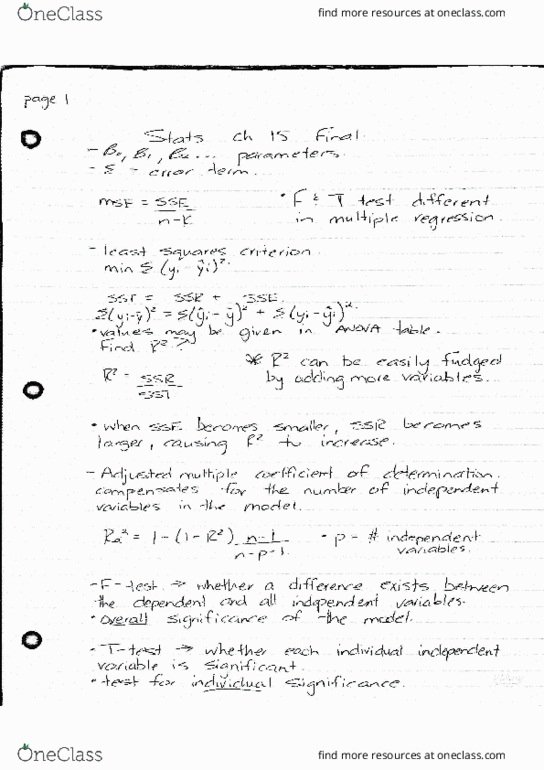 OneClass
find more resources at oneclass.com
page 1
Stats ch 15 Final
- B₀, B₁, B₂... parameters.
- Σ - error term.
MSE = SSE / n-K
• F & T test different in multiple regression.
- least squares criterion
min Σ (yi - ŷi)²
SST = SSR + SSE
Σ(yi-ȳ)² = Σ(ŷi - ȳ)² + Σ(yi - ŷi)²
• values may be given in ANOVA table.
Find R² ?
R² = SSR / SST
* R² can be easily fudged
by adding more variables...
• when SSE becomes smaller, SSR becomes
larger, causing R² to increase.
- Adjusted multiple coefficient of determination.
compensates for the number of independent
variables in the model.
Ra² = 1 - (1 - R²) n-1 / n-p-1
• p = # independent
variables.
- F-test → whether a difference exists between
the dependent and all independent variables.
• overall significance of the model.
• T-test → whether each individual independent
variable is significant.
• test for individual significance.
OneClass
find more resources at oneclass.com